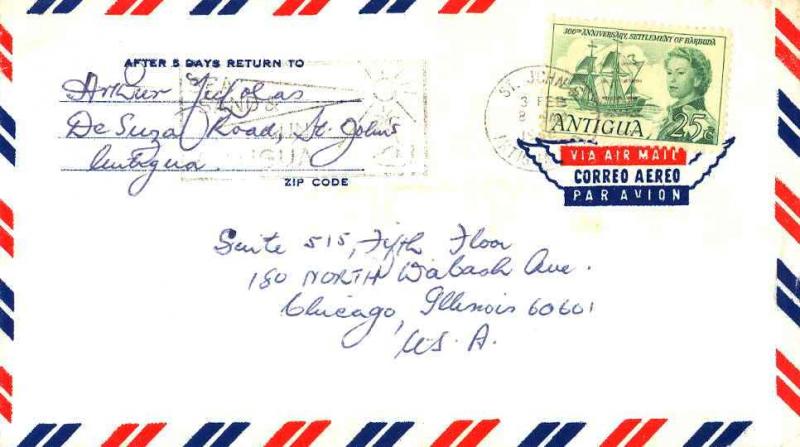 AFTER 5 DAYS RETURN TO
Arthur Nicholas
De Suza Road, St. John's
Antigua
ZIP CODE
ANTIGUA
300TH ANNIVERSARY, SETTLEMENT OF BARBUDA
ANTIGUA
25c
ST. JOHN
3 FEB
VIA AIR MAIL
CORREO AEREO
PAR AVION
Suite 515, Fifth Floor
180 NORTH Wabash Ave.
Chicago, Illinois 60601
U.S.A.